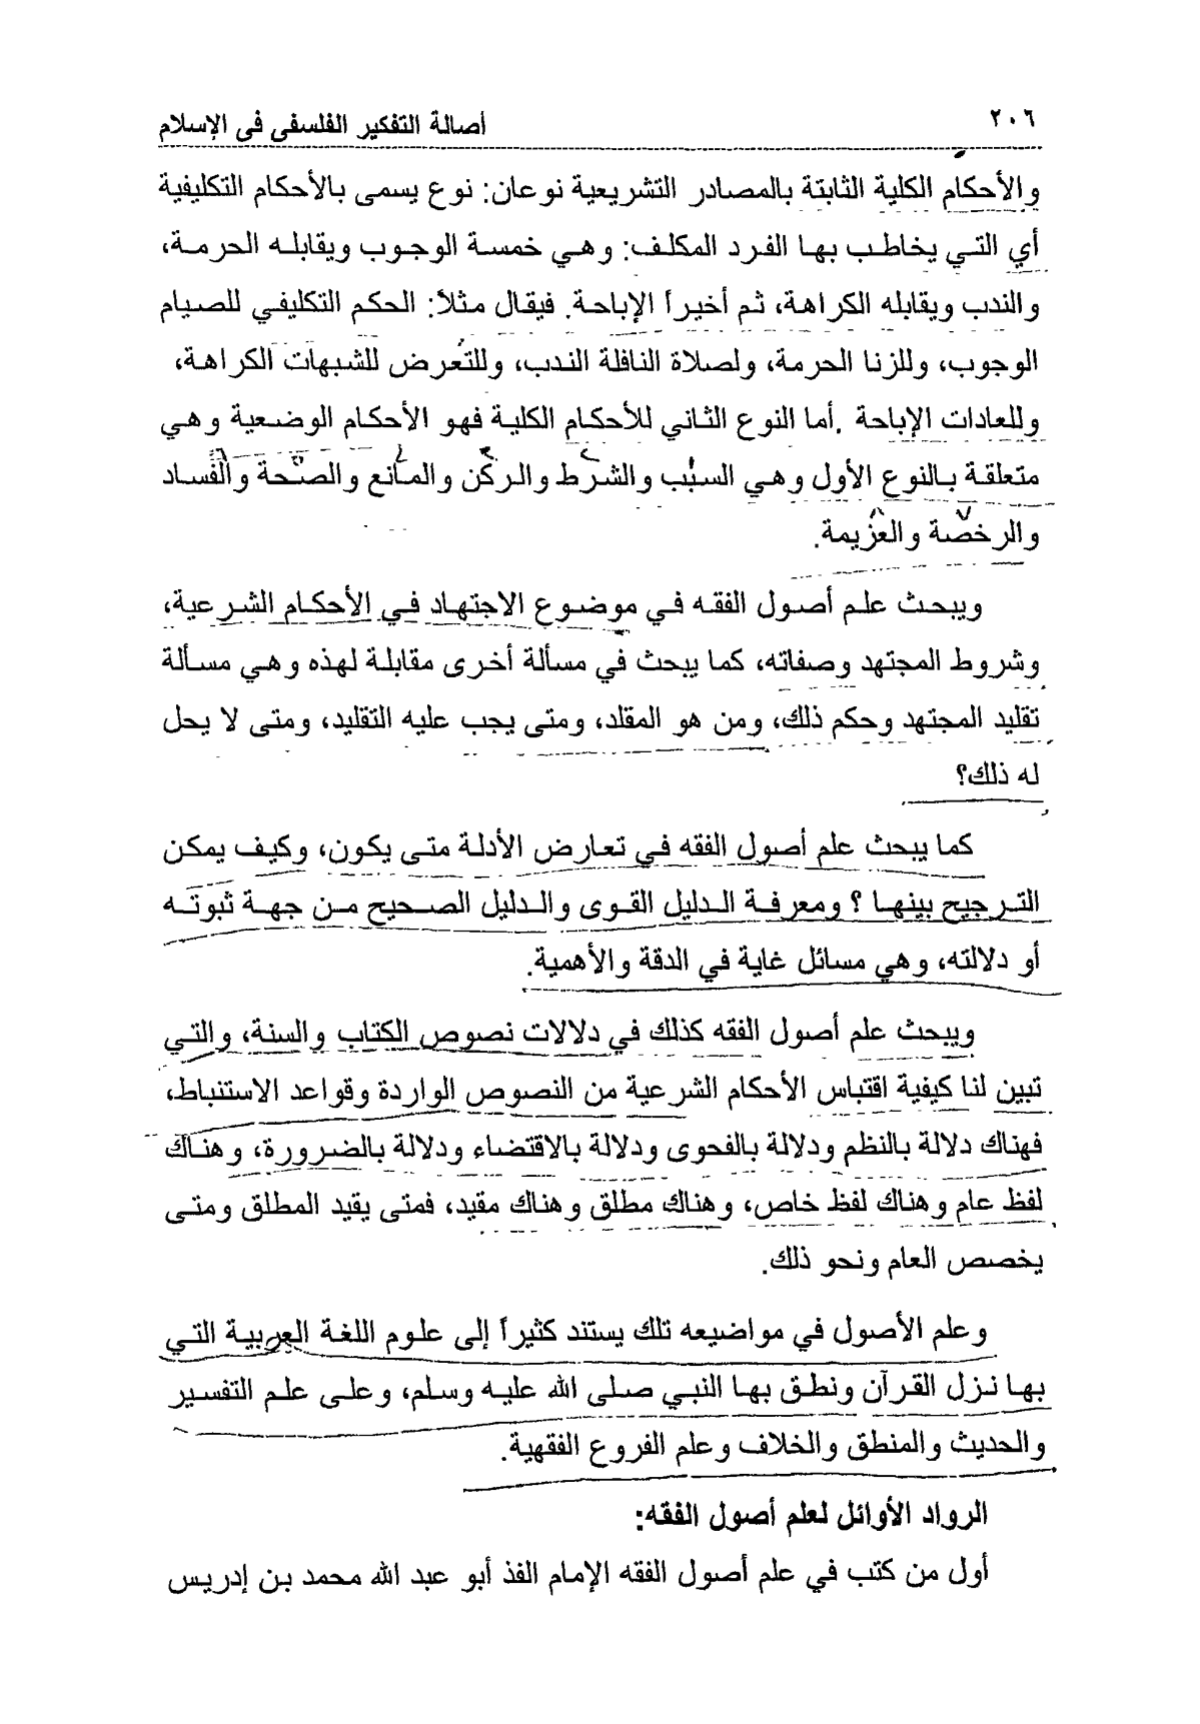 ٢٠٦
أصالة التفكير الفلسفى فى الإسلام
والأحكام الكلية الثابتة بالمصادر التشريعية نوعان: نوع يسمى بالأحكام التكليفية
أي التي يخاطب بها الفرد المكلف: وهي خمسة الوجوب ويقابله الحرمة،
والندب ويقابله الكراهة، ثم أخيراً الإباحة. فيقال مثلاً: الحكم التكليفي للصيام
الوجوب، وللزنا الحرمة، ولصلاة النافلة الندب، وللتعرض للشبهات الكراهة،
وللعادات الإباحة .أما النوع الثاني للأحكام الكلية فهو الأحكام الوضعية وهي
متعلقة بالنوع الأول وهي السبب والشرط والركن والمانع والصحة والفساد
والرخصة والعزيمة.
ويبحث علم أصول الفقه في موضوع الاجتهاد في الأحكام الشرعية،
وشروط المجتهد وصفاته، كما يبحث في مسألة أخرى مقابلة لهذه وهي مسألة
تقليد المجتهد وحكم ذلك، ومن هو المقلد، ومتى يجب عليه التقليد، ومتى لا يحل
له ذلك؟
كما يبحث علم أصول الفقه في تعارض الأدلة متى يكون، وكيف يمكن
الترجيح بينها ؟ ومعرفة الدليل القوى والدليل الصحيح من جهة ثبوته
أو دلالته، وهي مسائل غاية في الدقة والأهمية.
ويبحث علم أصول الفقه كذلك في دلالات نصوص الكتاب والسنة، والتي
تبين لنا كيفية اقتباس الأحكام الشرعية من النصوص الواردة وقواعد الاستنباط،
فهناك دلالة بالنظم ودلالة بالفحوى ودلالة بالاقتضاء ودلالة بالضرورة، وهناك
لفظ عام وهناك لفظ خاص، وهناك مطلق وهناك مقيد، فمتى يقيد المطلق ومتى
يخصص العام ونحو ذلك.
وعلم الأصول في مواضيعه تلك يستند كثيراً إلى علوم اللغة العربية التي
بها نزل القرآن ونطق بها النبي صلى الله عليه وسلم، وعلى علم التفسير
والحديث والمنطق والخلاف وعلم الفروع الفقهية.
الرواد الأوائل لعلم أصول الفقه:
أول من كتب في علم أصول الفقه الإمام الفذ أبو عبد الله محمد بن إدريس